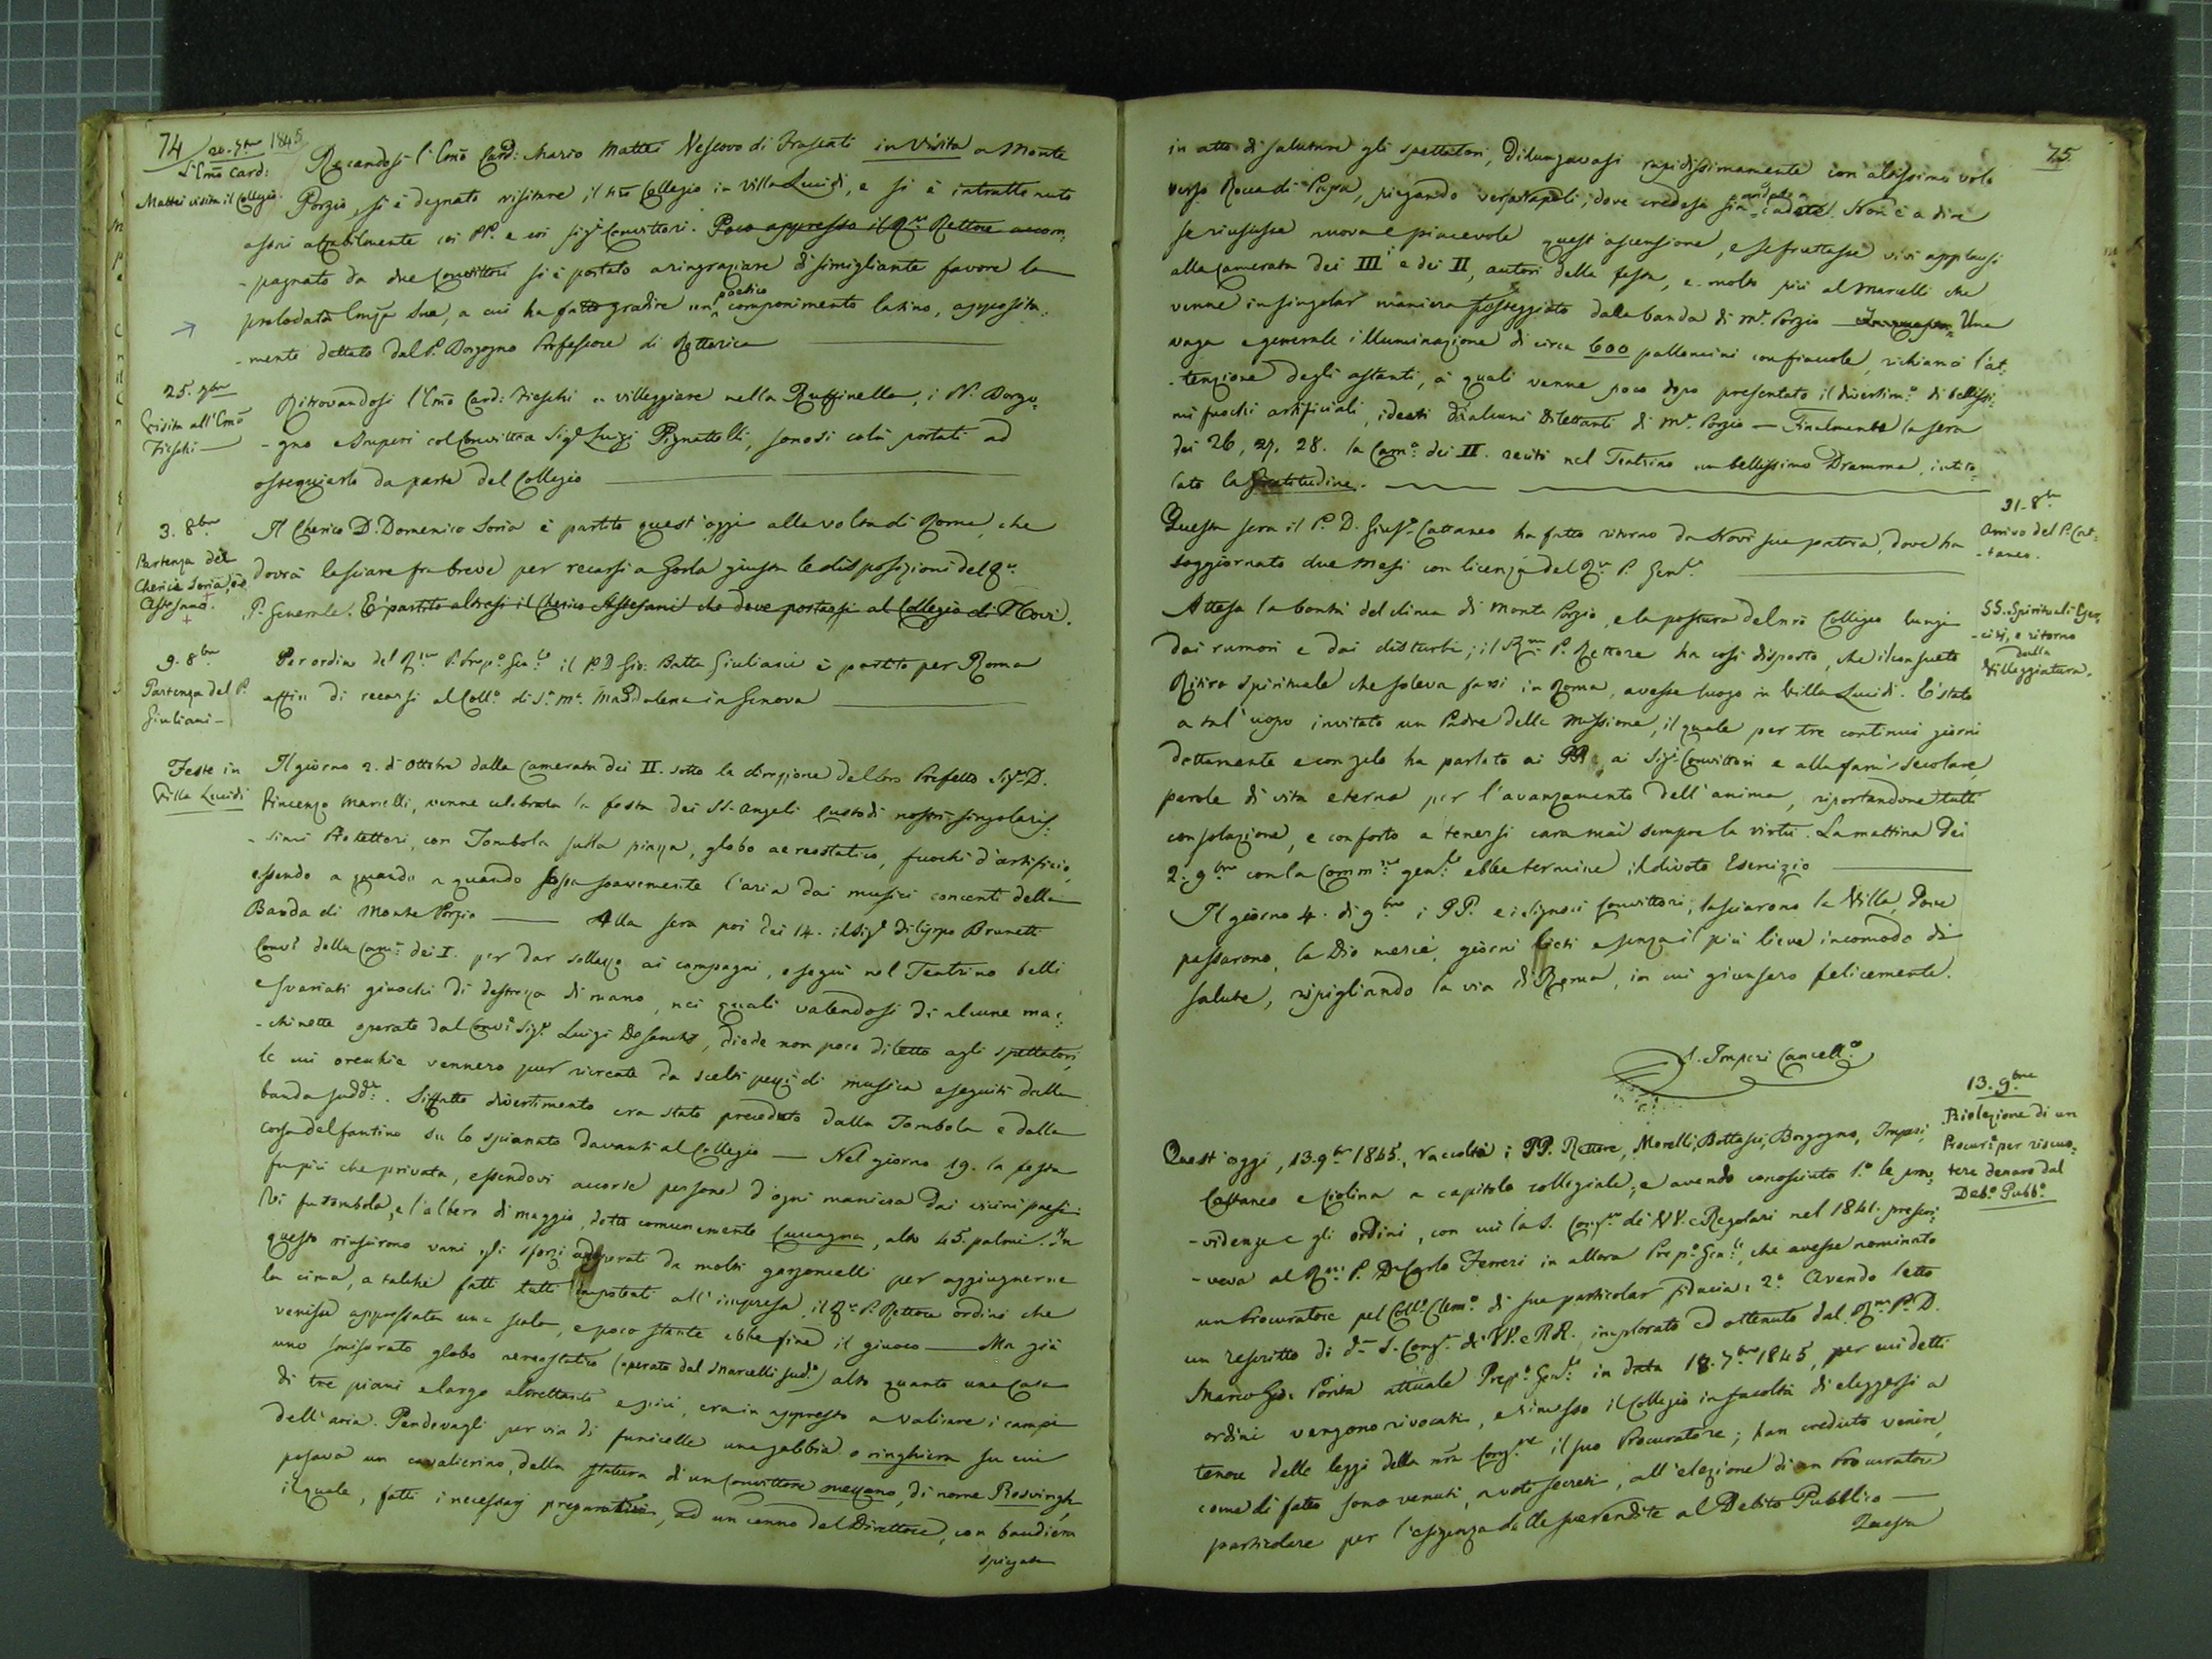 74
20. 7bre 1845
L'Emo Card:
Mattei visita il Collegio.
Recandosi l'Emo Card: Mario Mattei Vescovo di Frascati in visita a Monte
Porzio, si è degnato visitare il nro Collegio in Villa Lucidi, e si è intrattenuto
assai affabilmente coi PP. e coi Sigi Convittori. Poco appresso il Rmo Rettore accom:
- pagnato da due Convittori si è portato a ringraziare di simigliante favore la
prelodata Emza Sua, a cui ha fatto gradire un poetico componimento latino, apposita:
- mente dettato dal P. Borgogno Professore di Rettorica
25. 7bre
Visita all'Emo
Fieschi
Ritrovandosi l'Emo Card: Fieschi a villeggiare nella Ruffinella, i PP. Borgo:
- gno e Imperi col Convittore Sigr Luigi Pignattelli, sonosi colà portati ad
ossequiarlo da parte del Collegio
3. 8bre
Partenza del
Cherico Soria, e
Astesano.
Il Cherico D. Domenico Soria è partito quest'oggi alla volta di Roma, che
dovrà lasciare fra breve per recarsi a Gorla giusta le disposizioni del Rmo
P. Generale. È partito altresì il Cherico Astesani che deve portarsi al Collegio di Novi.
9. 8bre
Partenza del P.
Giuliani
Per ordine del Rmo P. Prepo Genle il P. D. Gio: Batta Giuliani è partito per Roma
affin di recarsi al Collo di Sa Ma Maddalena in Genova
Feste in
Villa Lucidi
Il giorno 2. di Ottobre dalla Camerata dei II. sotto la direzione del loro Prefetto Sigr D.
Vincenzo Marcelli, venne celebrata la festa dei SS. Angeli Custodi nostri singolaris:
- simi Protettori, con Tombola sulla piazza, globo aereostatico, fuochi d'artificio,
essendo a quando a quando scossa soavemente l'aria dai musici concenti della
Banda di Monte Porzio — Alla sera poi dei 14. il Sigr Filippo Brunetti
Convre della Cama dei I. per dar sollazzo ai compagni, eseguì nel Teatrino belli
e svariati giuochi di destrezza di mano, nei quali valendosi di alcune mac:
- chinette operate dal Convre Sigr Luigi De Sanctis, diede non poco diletto agli spettatori,
le cui orecchie vennero pur ricreate da scelti pezzi di musica eseguiti dalla
banda sudda. Siffatto divertimento era stato preceduto dalla Tombola e dalla
corsa del fantino su lo spianato davanti al Collegio — Nel giorno 19. la festa
fu più che privata, essendovi accorse persone d'ogni maniera dai vicini paesi:
Vi fu tombola, e l'albero di maggio, detto comunemente Cuccagna, alto 45. palmi. In
questo riuscirono vani gli sforzi adoperati da molti garzoncelli per aggiugnerne
la cima, a talchè fatti tutti impotenti all'impresa, il Rmo P. Rettore ordinò che
venisse appressata una scala, e poco stante ebbe fine il giuoco — Ma già
uno smisurato globo aereostatico (operato dal Marcelli sudo) alto quanto una Casa
di tre piani e largo altrettanto e più, era in appresto a valicare i campi
dell'aria. Pendevagli per via di funicelle una gabbia o ringhiera su cui
posava un cavalierino, della statura di un Convittore mezzano, di nome Rosvingh,
il quale, fatti i necessarj preparativi, ad un cenno del Direttore, con bandiera
spiegata
75.
in atto di salutare gli spettatori, dilungavasi rapidissimamente con altissimo volo
verso Rocca di Papa, piegando verso Napoli, dove credesi sia caduto. Non è a dire
se riuscisse nuova e piacevole quest'ascensione, e se fruttasse vivi applausi
alla Camerata dei III e dei II, autori della festa, e molto più al Marcelli che
venne in singolar maniera festeggiato dalla banda di Me Porzio — Una
vaga e generale illuminazione di circa 600 palloncini con fiaccole, richiamò l'at:
- tenzione degli astanti, ai quali venne poco dopo presentato il divertimo di bellissi:
mi fuochi artificiali, ideati da alcuni Dilettanti di Me Porzio — Finalmente la sera
dei 26, 27, 28. la Cama dei II. recitò nel Teatrino un bellissimo Dramma, intito:
lato la Gratitudine.
31. 8bre
Arrivo del P. Cat:
- taneo.
Questa sera il P. D. Giuse Cattaneo ha fatto ritorno da Novi sua patria, dove ha
soggiornato due mesi con licenza del Rmo P. Genle
SS. Spirituali Eser:
- cizj, e ritorno
dalla
Villeggiatura.
Attesa la bontà del clima di Monte Porzio, e la postura del nro Collegio lungi
dai rumori e dai disturbi; il Rmo P. Rettore ha così disposto, che il consueto
Ritiro spirituale che soleva farsi in Roma, avesse luogo in Villa Lucidi. È stato
a tal'uopo invitato un Padre della Missione, il quale per tre continui giorni
dottamente e con zelo ha parlato ai PP., ai Sigi Convittori e alla fama secolare,
parole di vita eterna per l'avanzamento dell'anima, riportandone tutti
consolazione, e conforto a tenersi cara mai sempre la virtù. La mattina dei
2. 9bre con la Comme genle ebbe termine il divoto Esercizio
Il giorno 4. di 9bre i PP. e i Signori Convittori, lasciarono la Villa, dove
passarono, la Dio mercè, giorni lieti e senza il più lieve incomodo di
salute, ripigliando la via di Roma, in cui giunsero felicemente.
S. Imperi Cancello
13. 9bre
Rielezione di un
Procure per riscuo:
tere denaro dal
Debo Pubbo
Quest'oggi, 13. 9bre 1845., raccolti i PP. Rettore, Morelli, Bottasi, Borgogno, Imperi,
Cattaneo e Ciolina a capitolo collegiale, e avendo conosciuto 1.o le prov:
- videnze e gli ordini, con cui la S. Congne dei VV. e Regolari nel 1841. prescri:
- veva al Rmo P. D. Carlo Ferreri in allora Prepo Genle, che avesse nominato
un Procuratore pel Collo Clemo di sua particolar fiducia: 2.o Avendo letto
un rescritto di da S. Congne de' VV. e RR. implorato ed ottenuto dal Rmo P. D.
Marco Gio: Ponta attuale Prepo Genle in data 18. 7bre 1845, per cui detti
ordini vengono rivocati, e rimesso il Collegio in facoltà di eleggersi a
tenore delle leggi della nra Congne il suo Procuratore; han creduto venire,
come di fatto sono venuti, a voti secreti, all'elezione di un Procuratore
particolare per l'esigenza delle sue rendite al Debito Pubblico —
Questa